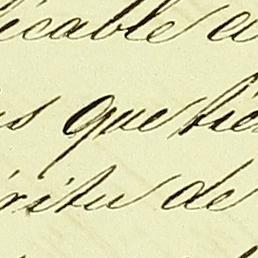 icable e
s que tie
ritu de